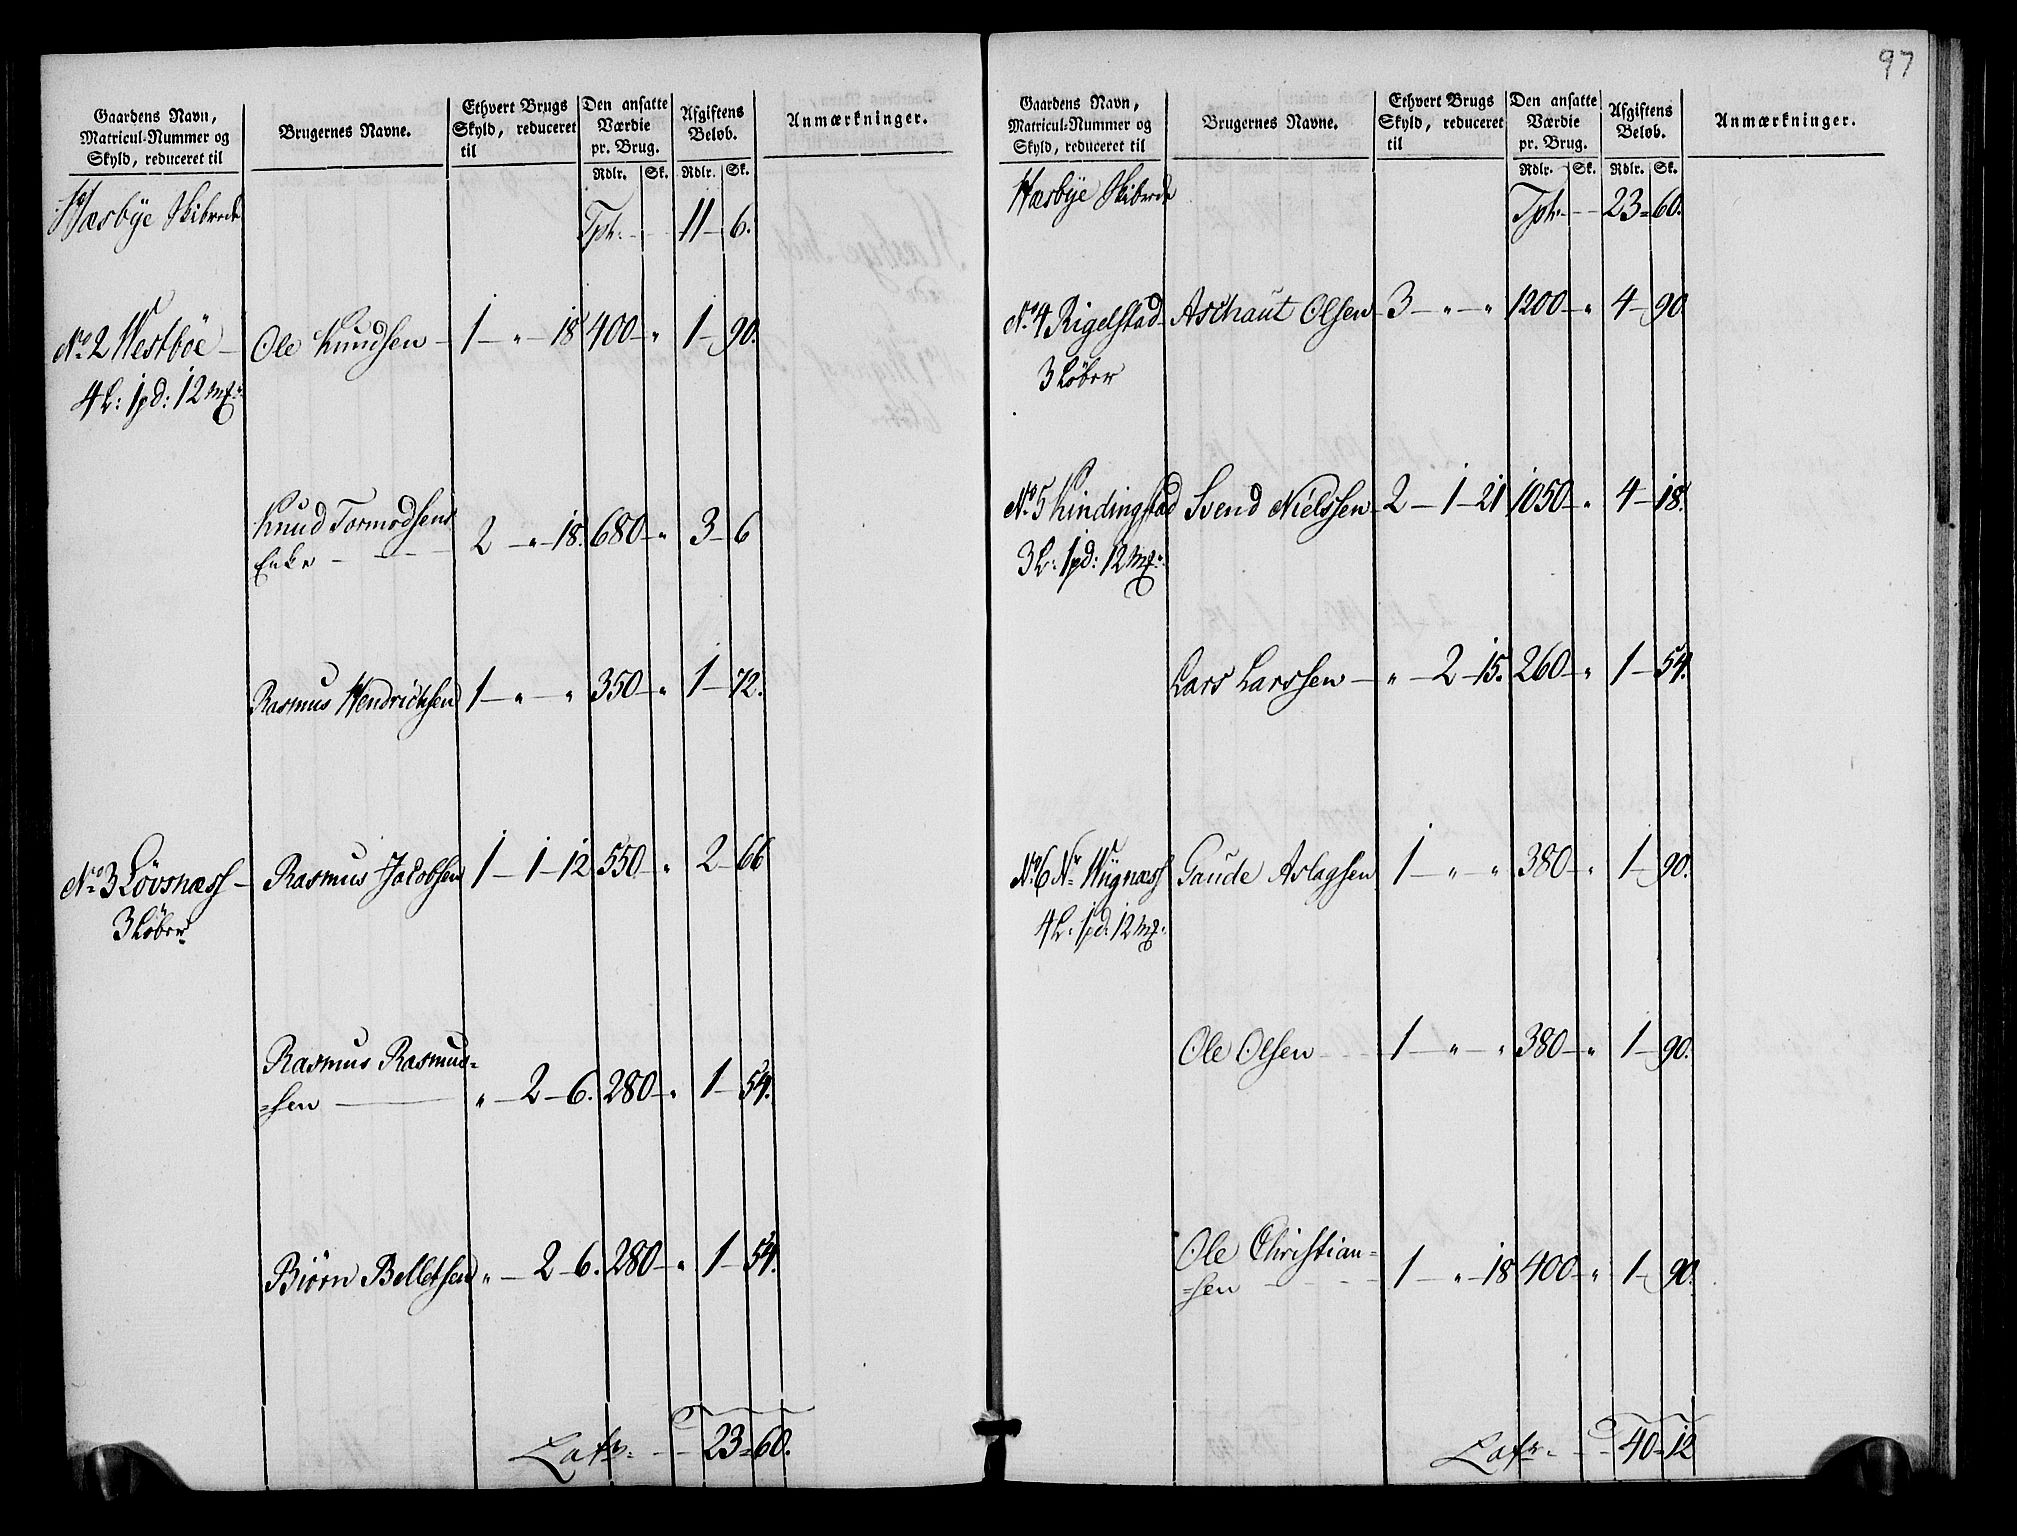 97
Gaardens Navn,
Matricul-Nummer og
Skyld, reduceret til
Brugernes Navne.
Ethvert Brugs
Skyld, reduceret
til
Den ansatte
Værdie
pr. Brug.
Afgiftens
Beløb.
Anmærkninger.
Rdlr. Sk. Rdlr. Sk.
Hæsbÿe Skibrede
Tpt: 11 - 6.
No. 2 Westbøe - Ole Knudsen - 1 - " - 18 400 - " 1 - 90.
4 L: 1 pd: 12 mk:
Knud Tormodsens
Enke - - - 2 - " - 18. 680 - " 3 - 6
Rasmus Hendrichsen 1 - " - " 350 - " 1 - 72.
No. 3 Løvsnæss - Rasmus Jacobsen 1 - 1 - 12 550 - " 2 - 66
3 Løber
Rasmus Rasmus=
=sen - " - 2 - 6. 280 - " 1 - 54.
Biørn Belletsen " - 2 - 6. 280 - " 1 - 54.
Lat: - - 23 = 60.
Gaardens Navn,
Matricul-Nummer og
Skyld, reduceret til
Brugernes Navne.
Ethvert Brugs
Skyld, reduceret
til
Den ansatte
Værdie
pr. Brug.
Afgiftens
Beløb.
Anmærkninger.
Rdlr. Sk. Rdlr. Sk.
Hæsbÿe Skibrede
Tpt: - - 23 = 60.
No. 4 Rigelstad - Aschaut Olsen - 3 - " - " 1200 - " 4 - 90
3 Løber
No. 5 Kindingstad Svend Nielssen - 2 - 1 - 21 1050 - " 4 - 18.
3 L: 1 pd: 12 mk:
Lars Larssen - " - 2 - 15. 260 - " 1 - 54.
No. 6 Nr. Wignæss Gaude Aslagsen 1 - " - " 380 - " 1 - 90.
4 L: 1 pd: 12 mk:
Ole Olsen - - - 1 - " - " 380 - " 1 - 90.
Ole Christian=
=sen - - - - 1 - " - 18 400 - " 1 - 90.
Lat: - - 40 = 12